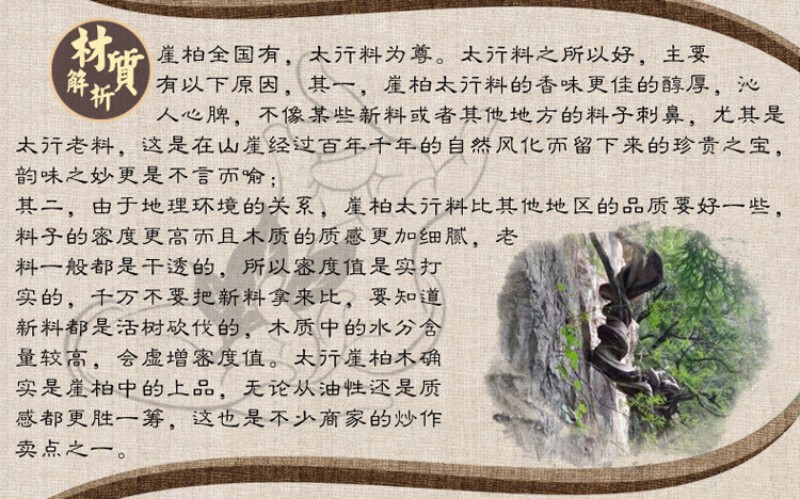 材質
解析
崖柏全国有，太行料为尊。太行料之所以好，主要
有以下原因，其一，崖柏太行料的香味更佳的醇厚，沁
人心脾，不像某些新料或者其他地方的料子刺鼻，尤其是
太行老料，这是在山崖经过百年千年的自然风化而留下来的珍贵之宝，
韵味之妙更是不言而喻；
其二，由于地理环境的关系，崖柏太行料比其他地区的品质要好一些，
料子的密度更高而且木质的质感更加细腻，老
料一般都是干透的，所以密度值是实打
实的，千万不要把新料拿来比，要知道
新料都是活树砍伐的，木质中的水分含
量较高，会虚增密度值。太行崖柏木确
实是崖柏中的上品，无论从油性还是质
感都更胜一筹，这也是不少商家的炒作
卖点之一。